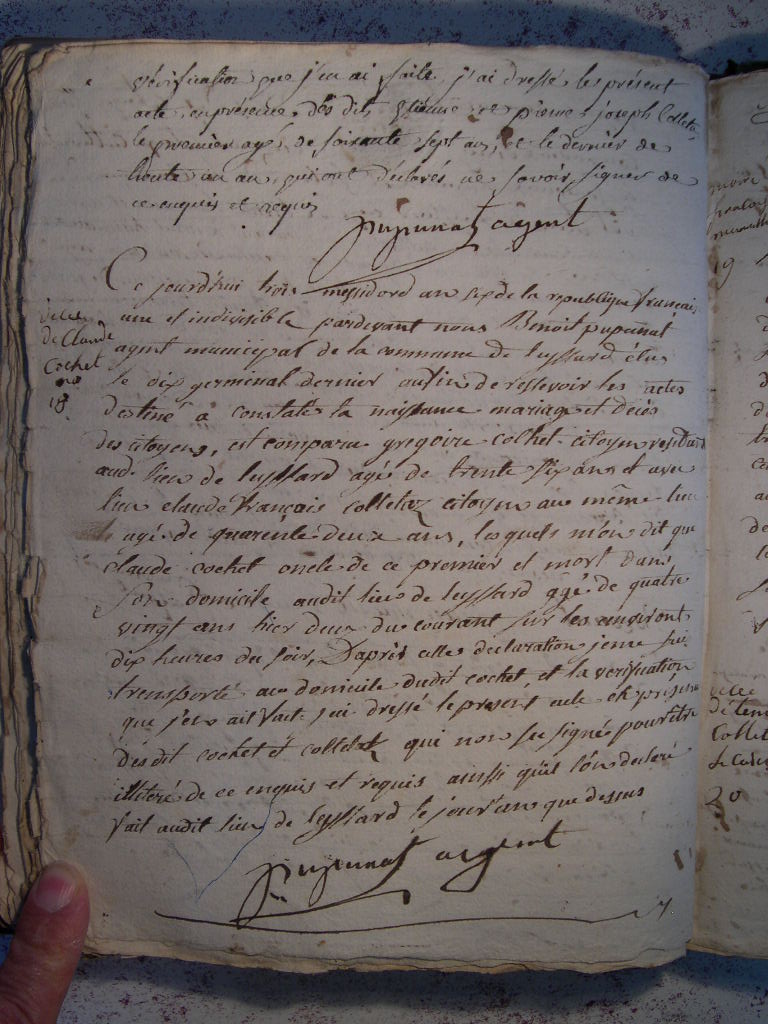 vérification que j'en ai faite, j'ai dressé les présent
acte en présence des dits Etienne et pierre joseph Colleta
le premier agé de soixante sept ans, et le dernier de
trente un an, qui ont déclarés ne savoir signer de
ce enquis et requis
pupunat agent
Ce jourdhui trois messidord an six de la republique français
une et indivisible pardevant nous Benoit pupunat
agent municipal de la commune de leyssard élus
le dix germinal dernier au fin de ressevoir les actes
destiné a constater la naissance mariage et décès
des citoyens, est comparu gregoire cochet citoyen residant
aud. lieu de leyssard agé de trente six ans et avec
lieu claude françois colletaz citoyen au même lieu
agé de quarente deux ans, lesquels m'on dit que
claude cochet oncle de ce premier et mort dans
son domicile audit lieu de leyssard agé de quatre
vingt ans hier deux du courant sur les environt
dix heures du soir, D'après cette declaration je me sui
transporté au domicile dudit cochet, et la verification
que j'en ait fait j'ai dressé le présent acte en présence
des dit cochet et colletaz qui non pu signé pour être
illiteré de ce enquis et requis ainsi qu'il l'on declaré
fait audit lieu de leyssard le jour an que dessus
pupunat agent
de Claude
Cochet
18
19
20